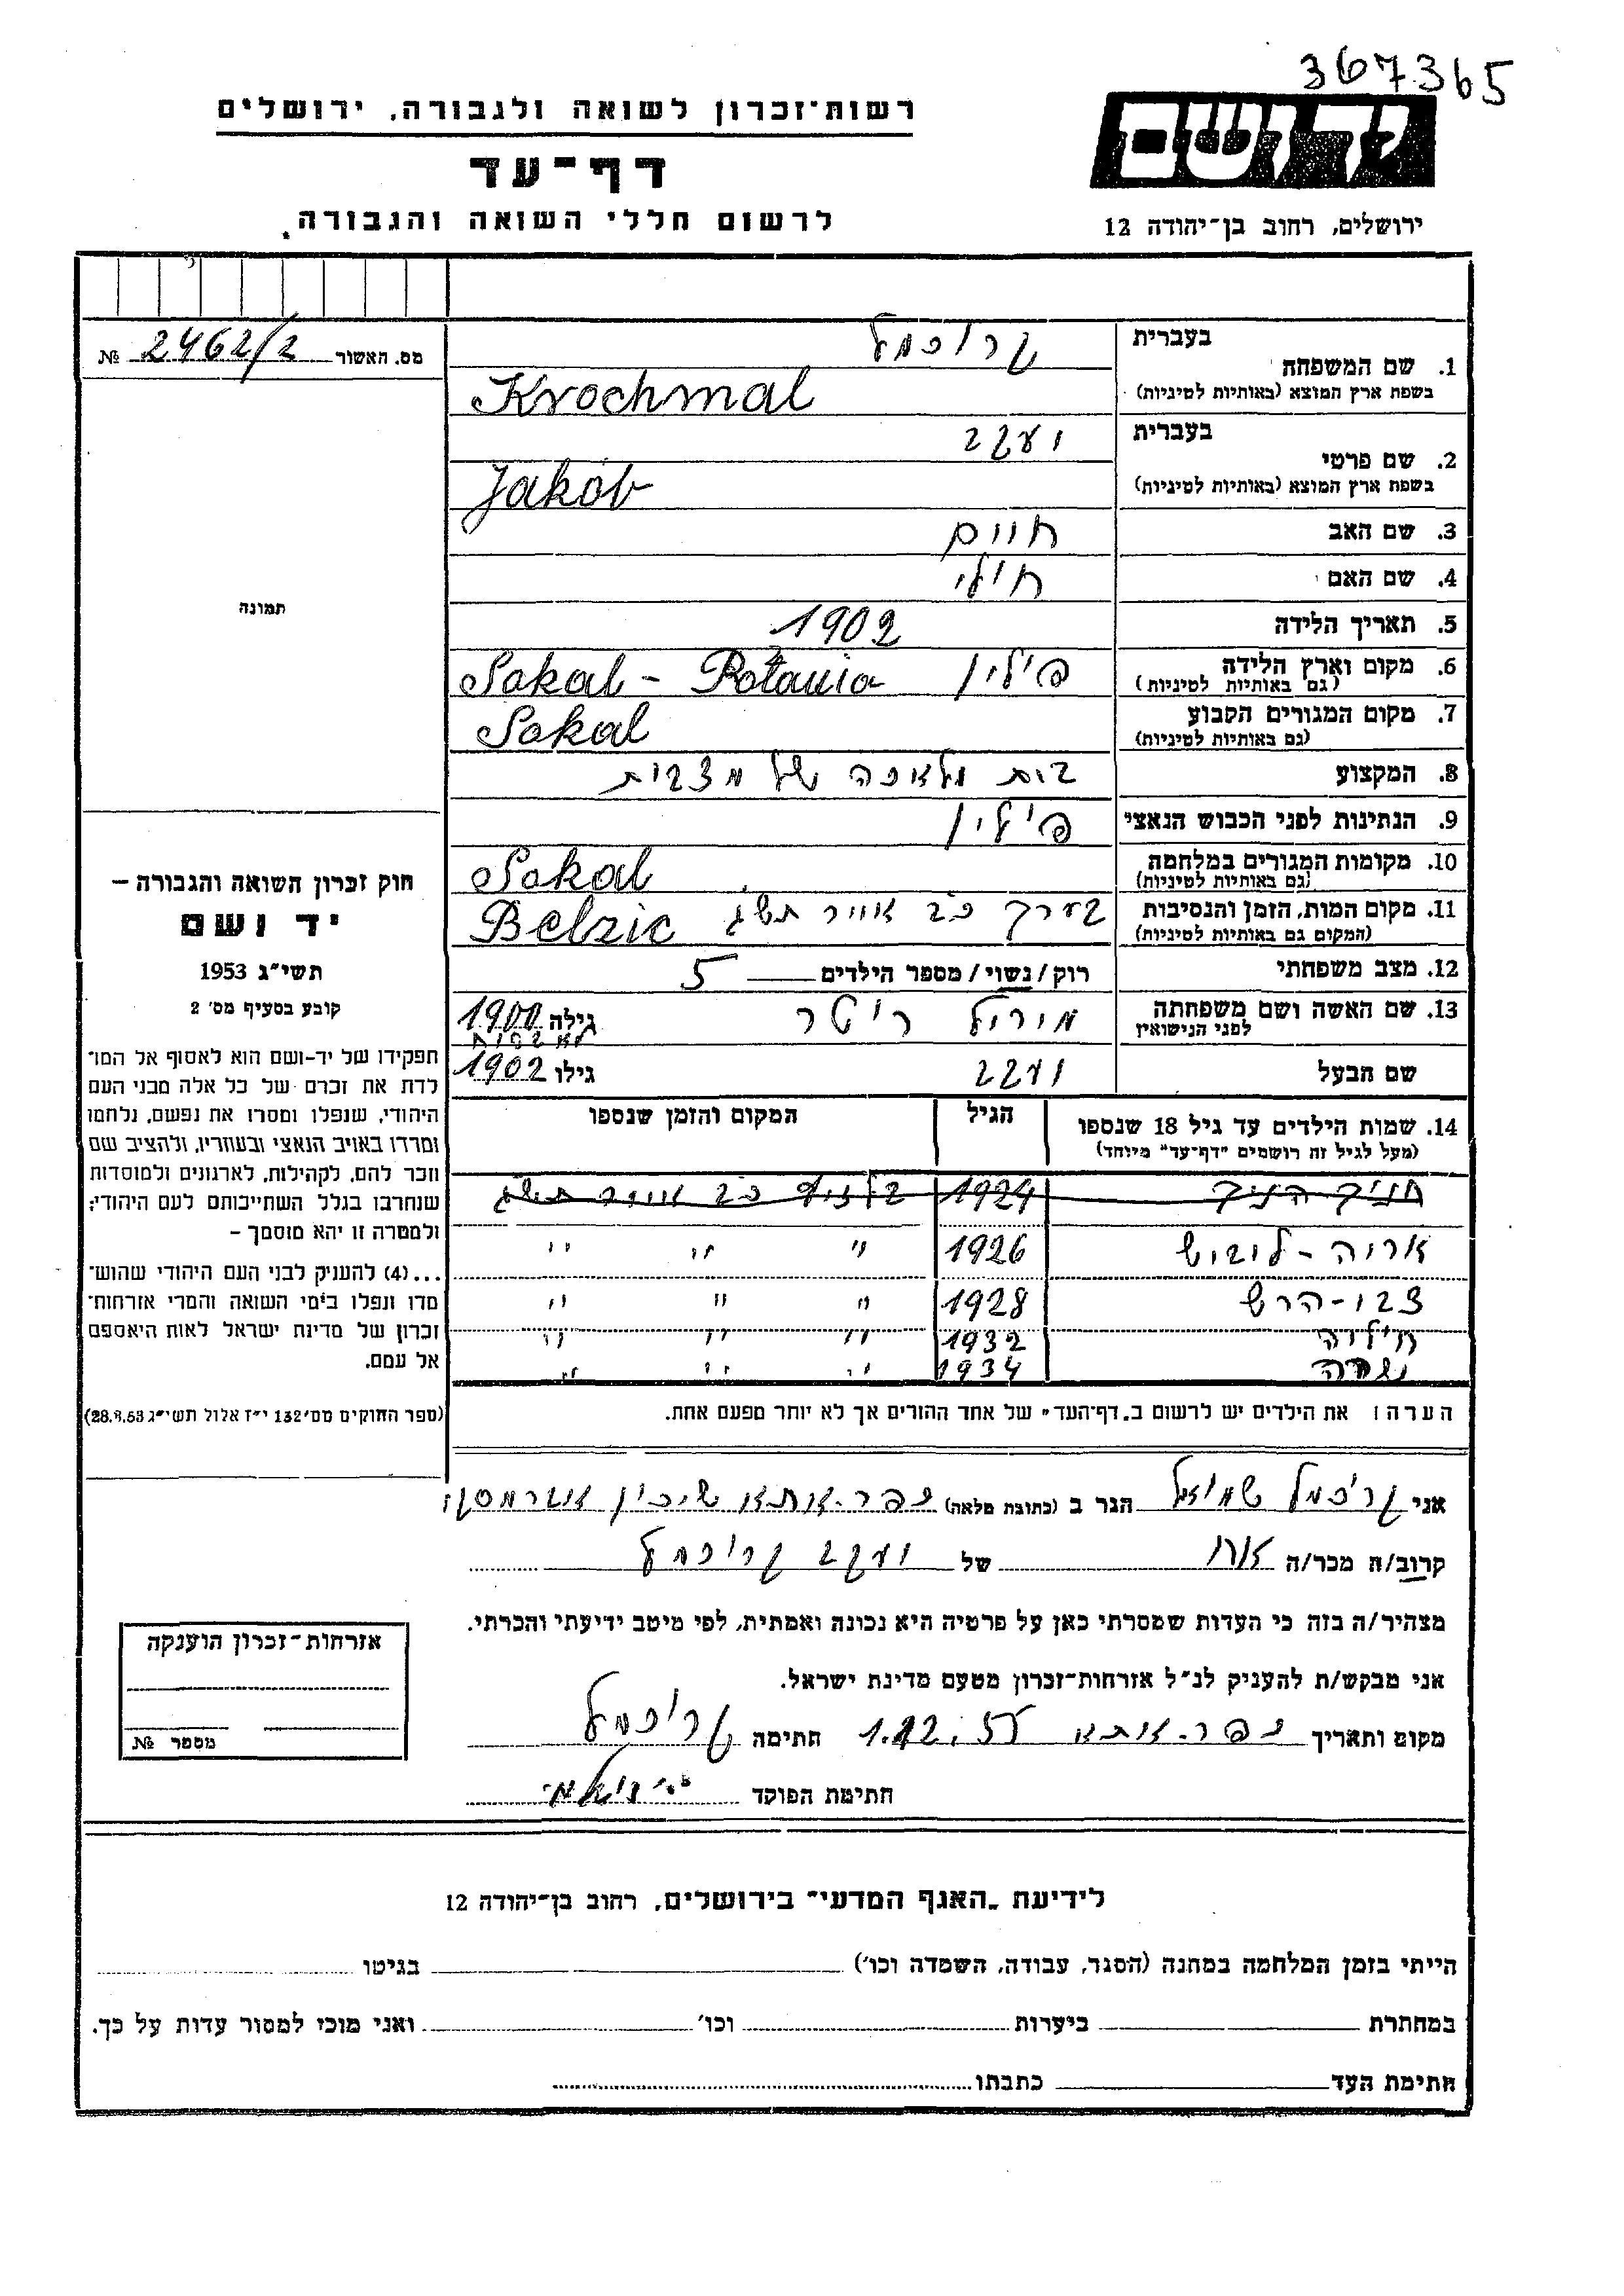 367365
רשות־זכרון לשואה ולגבורה, ירושלים
דף־עד
לרשום חללי השואה והגבורה.
יד ושם
ירושלים, רחוב בן־יהודה 12
מס. האשור 2462/2 №
בעברית קרוכמל
1. שם המשפחה
בשפת ארץ המוצא (באותיות לטיניות) Krochmal
בעברית יעקב
2. שם פרטי
בשפת ארץ המוצא (באותיות לטיניות) Jakób
3. שם האב חיים
4. שם האם
5. תאריך הלידה 1902
6. מקום וארץ הלידה פילין Sokal -
(גם באותיות לטיניות)
7. מקום המגורים הקבוע Sokal
(גם באותיות לטיניות)
8. המקצוע בית מלאכה של מצבות
9. הנתינות לפני הכבוש הנאצי פילין
10. מקומות המגורים במלחמה Sokal
(גם באותיות לטיניות)
11. מקום המות, הזמן והנסיבות בערך כ"ב אייר תש"ג Belzic
(המקום גם באותיות לטיניות)
12. מצב משפחתי רוק / נשוי / מספר הילדים 5
13. שם האשה ושם משפחתה מיריל ריטר גילה 1900
לפני הנישואין
שם הבעל יעקב גילו 1902
14. שמות הילדים עד גיל 18 שנספו הגיל המקום והזמן שנספו
(מעל לגיל זה רושמים "דף־עד" מיוחד)
1924 כ"ב אייר תש"ג
אריה - ליביש 1926 " " "
צבי - הרש 1928 " " "
1932 " " "
שרה 1934 " " "
הערה: את הילדים יש לרשום ב„דף־העד" של אחד ההורים אך לא יותר מפעם אחת.
תמונה
חוק זכרון השואה והגבורה –
יד ושם
תשי"ג 1953
קובע בסעיף מס' 2
תפקידו של יד-ושם הוא לאסוף אל המו־
לדת את זכרם של כל אלה מבני העם
היהודי, שנפלו ומסרו את נפשם, נלחמו
ומרדו באויב הנאצי ובעוזריו, ולהציב שם
וזכר להם, לקהילות, לארגונים ולמוסדות
שנחרבו בגלל השתייכותם לעם היהודי;
ולמטרה זו יהא מוסמך –
...(4) להעניק לבני העם היהודי שהוש־
מדו ונפלו בימי השואה והמרי אזרחות־
זכרון של מדינת ישראל לאות היאספם
אל עמם.
(ספר החוקים מס' 132 י"ז אלול תשי"ג 28.8.53)
אני קריכמל שמואל הגר ב (כתובת מלאה) כפר-אתא שיכון
קרוב/ה מכר/ה אחי של יעקב קרוכמל
מצהיר/ה בזה כי העדות שמסרתי כאן על פרטיה היא נכונה ואמתית, לפי מיטב ידיעתי והכרתי.
אני מבקש/ת להעניק לנ"ל אזרחות־זכרון מטעם מדינת ישראל.
מקום ותאריך כפר-אתא 1.12.55 חתימה קרוכמל
חתימת הפוקד
אזרחות־זכרון הוענקה
מספר №
לידיעת „האגף המדעי" בירושלים, רחוב בן־יהודה 12
הייתי בזמן המלחמה במחנה (הסגר, עבודה, השמדה וכו') בגיטו
במחתרת ביערות וכו' ואני מוכן למסור עדות על כך.
חתימת העד כתבתו